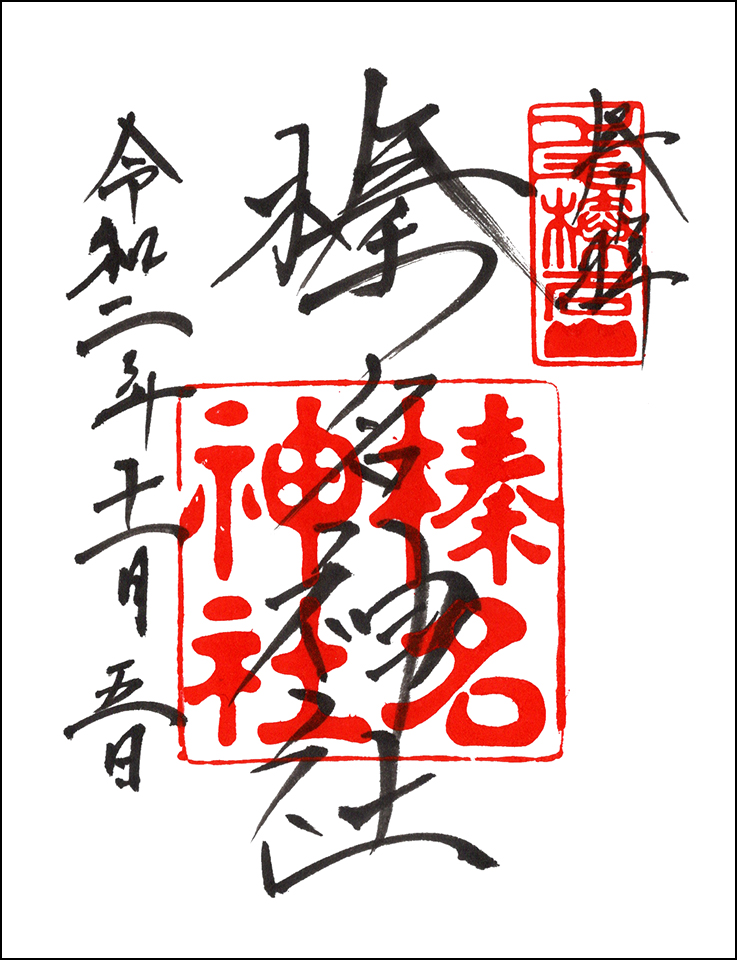 奉拝
榛名山
榛名神社
榛名
神社
令和二年十一月五日